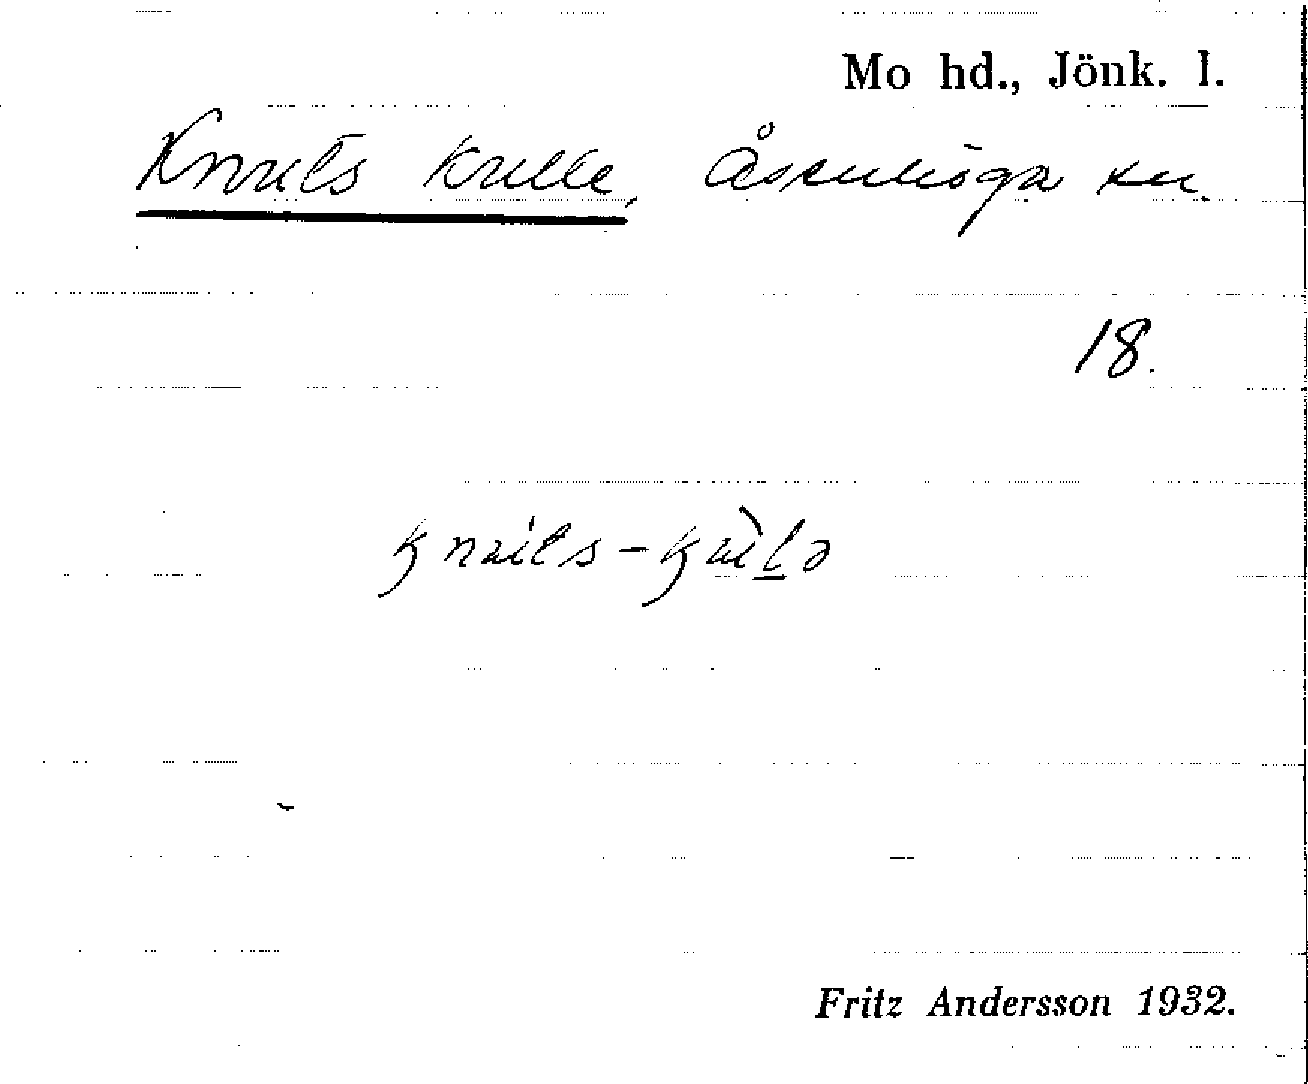 Mo hd., Jönk. l.
Knuts kulle, Åskenhöga sn.
18.
knuts-kulə
Fritz Andersson 1932.